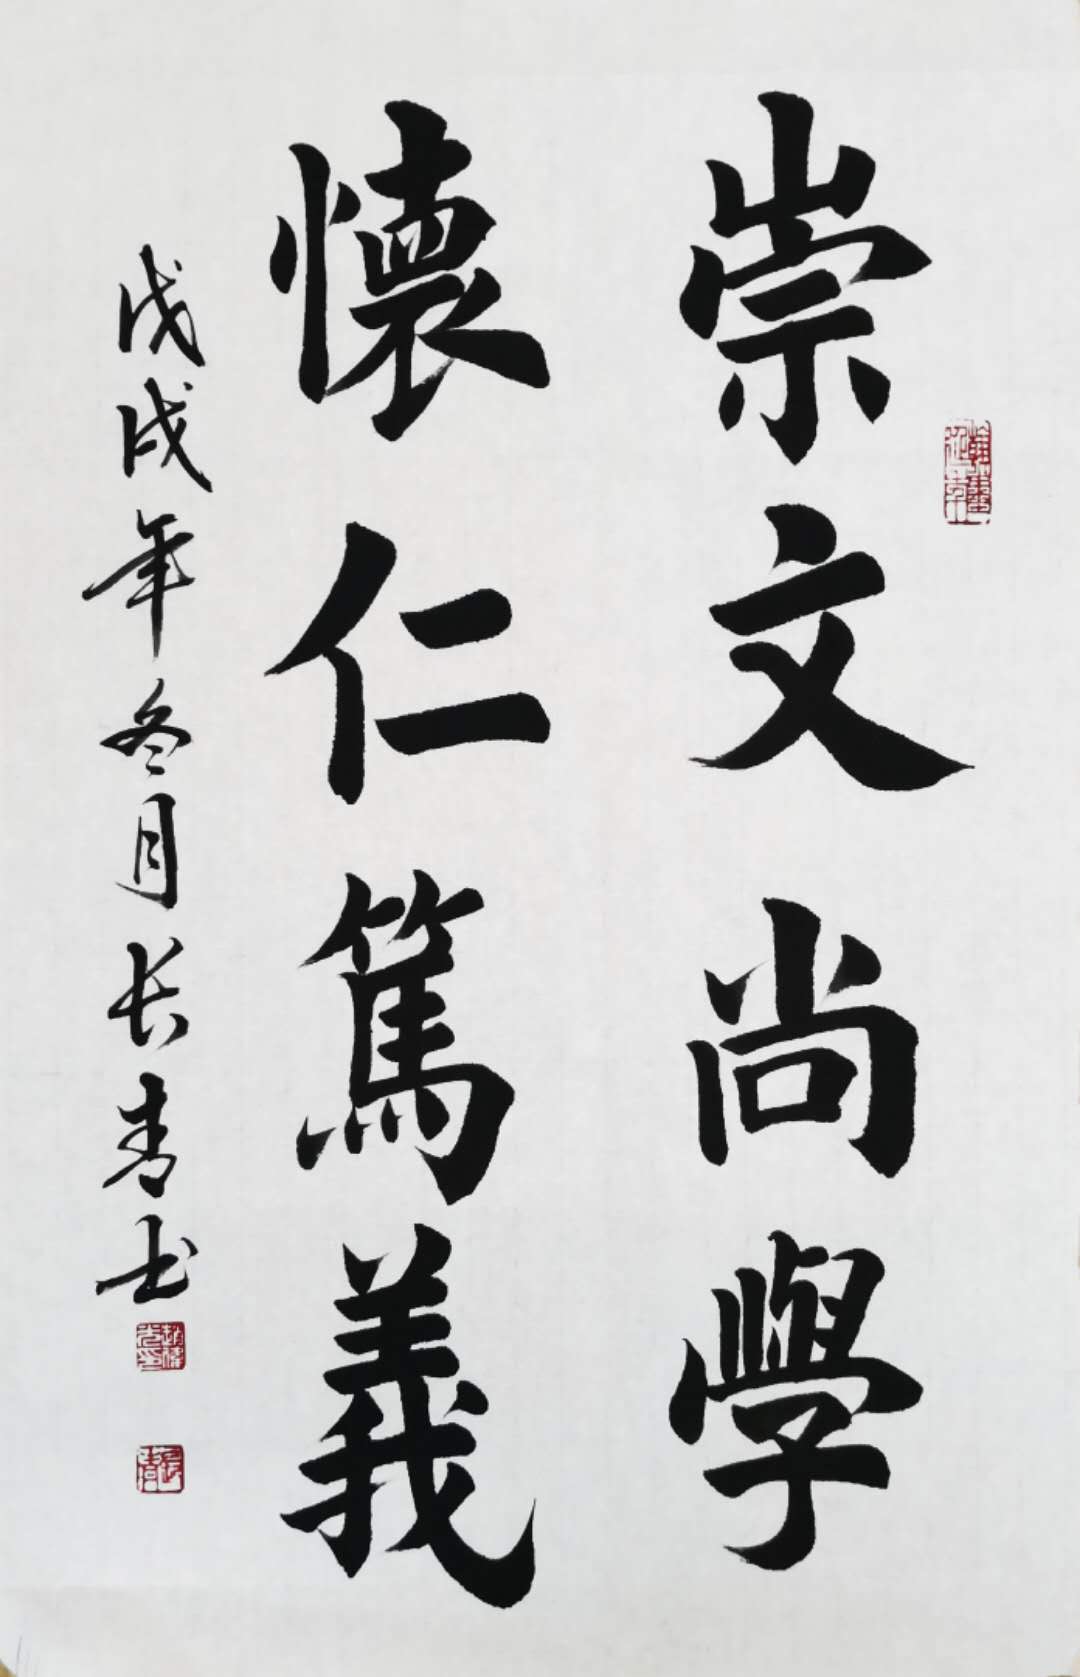 崇文尚學
懷仁篤義
戊戌年冬月长青书